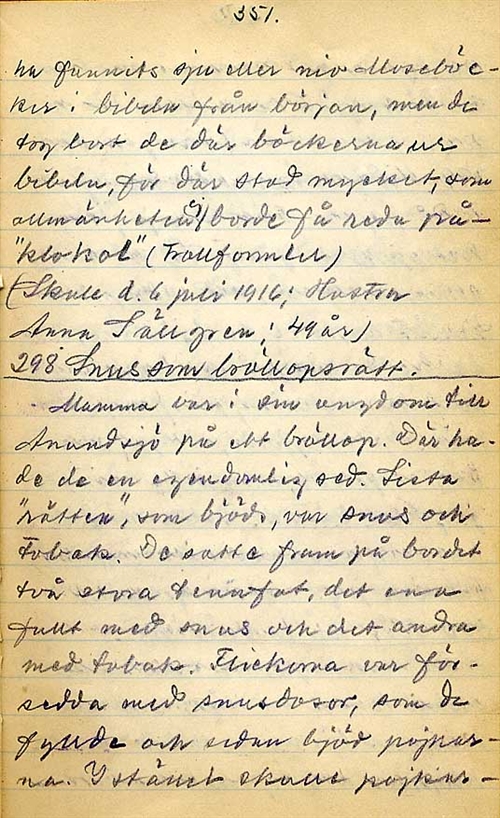 351.
ha funnits sju eller nio Moseböc-
ker i bibeln från början, men de
tog bort de där böckerna ur
bibeln, för där stod mycket, som
allmänheten ej borde få reda på –
"klokol" (Trollformler)
(Skule d. 6 juli 1916; Hustru
Anna Sällgren; 49 år)
298 Snus som bröllopsrätt.
Mamma var i sin ungdom till
Anundsjö på ett bröllop. Där ha-
de de en egendomlig sed. Sista
"rätten", som bjöds, var snus och
tobak. De satte fram på bordet
två stora tennfat, det ena
fullt med snus och det andra
med tobak. Flickorna var för-
sedda med snusdosor, som de
fyllde och sedan bjöd pojkar-
na. I stället skulle pojkar-